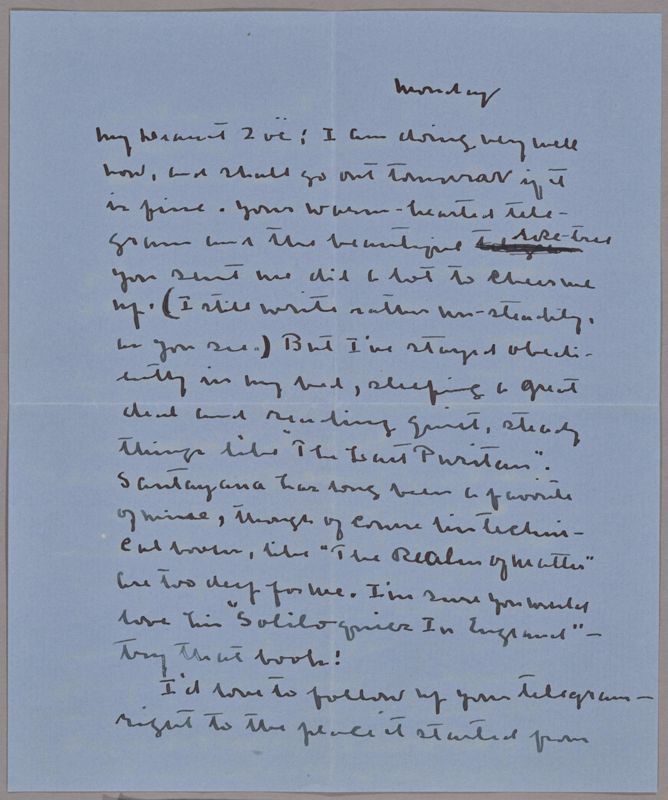 Monday
My dearest Zoë; I am doing very well
now, and shall go out tomorrow if it
is fine. Your warm-hearted tele-
gram and the beautiful rose-tree
you sent me did a lot to cheer me
up. (I still write rather un-steadily,
as you see.) But I've stayed obedi-
ently in my bed, sleeping a great
deal and reading quiet, steady
things like "The Last Puritan".
Santayana has long been a favorite
of mine, though of course his techni-
cal books, like "The Realm of Matter"
are too deep for me. I'm sure you would
love his "Soliloquies In England" —
try that book!
I'd love to follow up your telegram —
right to the place it started from